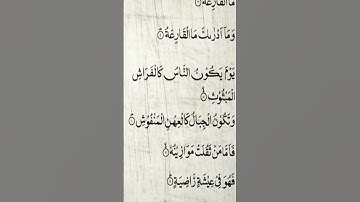 مَا الْقَارِعَةُ ۚ
وَمَآ اَدْرٰىكَ مَا الْقَارِعَةُ ؕ
يَوْمَ يَكُوْنُ النَّاسُ كَالْفَرَاشِ
الْمَبْثُوْثِ ۙ
وَتَكُوْنُ الْجِبَالُ كَالْعِهْنِ الْمَنْفُوْشِ ؕ
فَاَمَّا مَنْ ثَقُلَتْ مَوَازِيْنُهٗ ۙ
فَهُوَ فِيْ عِيْشَةٍ رَّاضِيَةٍ ؕ